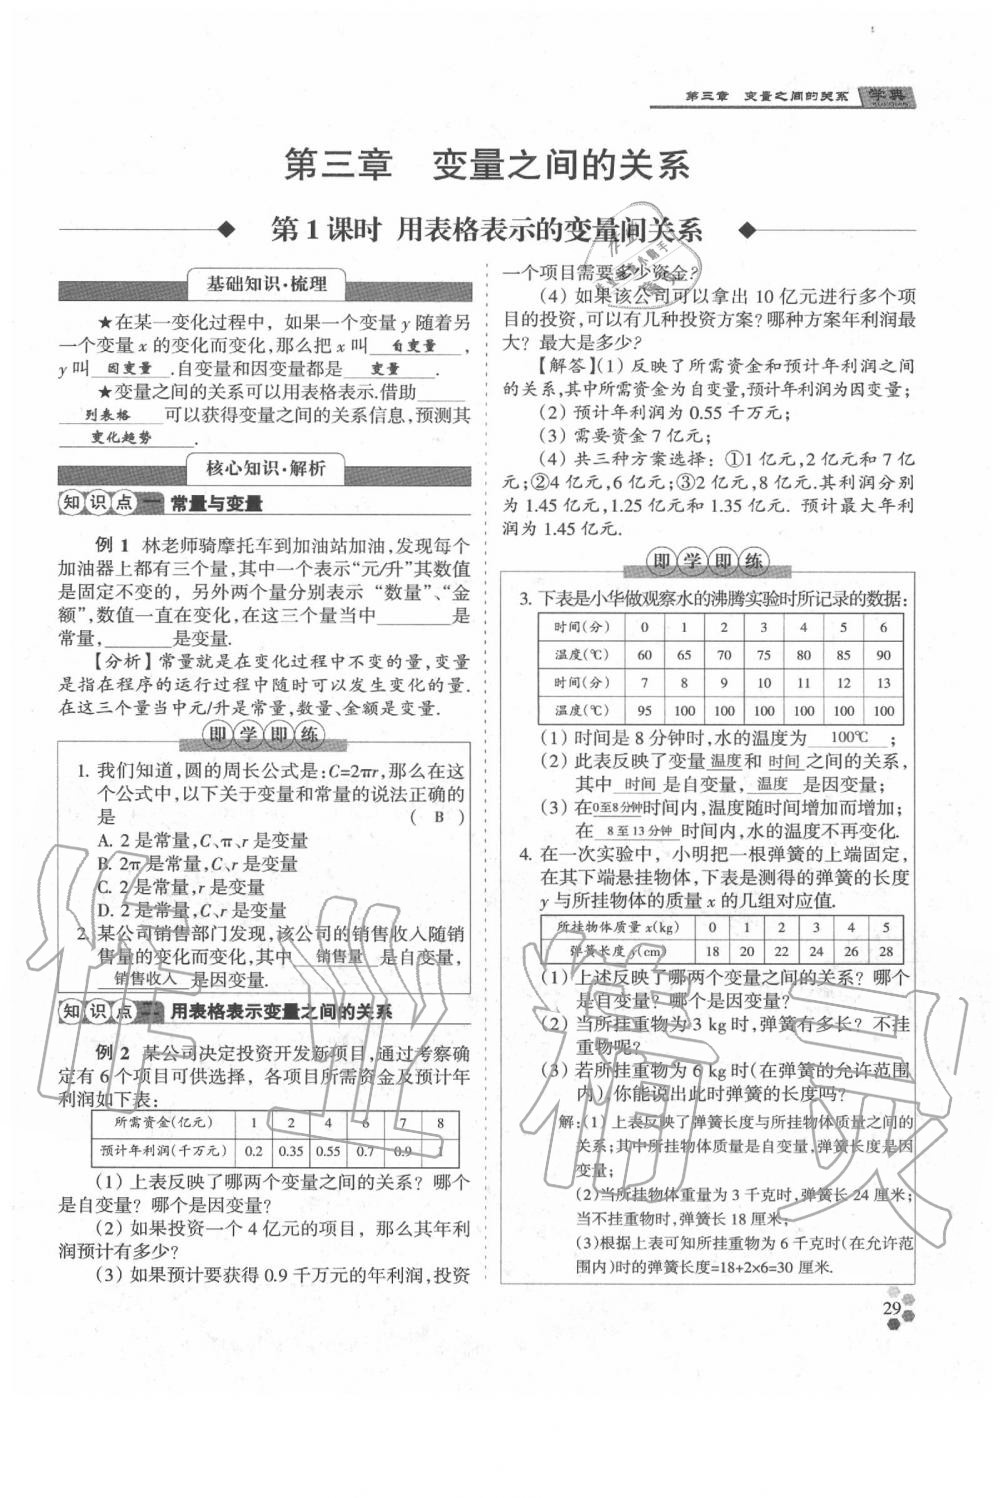 第三章 变量之间的关系 学典
XUEDIAN
第三章 变量之间的关系
第1课时 用表格表示的变量间关系
基础知识·梳理
★在某一变化过程中，如果一个变量 y 随着另
一个变量 x 的变化而变化,那么把 x 叫 自变量 ,
y 叫 因变量 .自变量和因变量都是 变量 .
★变量之间的关系可以用表格表示.借助
列表格 可以获得变量之间的关系信息,预测其
变化趋势 .
核心知识·解析
知识点一 常量与变量
例 1 林老师骑摩托车到加油站加油,发现每个
加油器上都有三个量,其中一个表示“元/升”其数值
是固定不变的，另外两个量分别表示“数量”、“金
额”,数值一直在变化,在这三个量当中______是
常量,______是变量.
【分析】常量就是在变化过程中不变的量,变量
是指在程序的运行过程中随时可以发生变化的量.
在这三个量当中元/升是常量,数量、金额是变量.
即学即练
1. 我们知道,圆的周长公式是:C=2πr,那么在这
个公式中,以下关于变量和常量的说法正确的
是 ( B )
A. 2 是常量,C、π、r 是变量
B. 2π 是常量,C、r 是变量
C. 2 是常量,r 是变量
D. 2 是常量,C、r 是变量
2. 某公司销售部门发现,该公司的销售收入随销
售量的变化而变化,其中 销售量 是自变量,
销售收入 是因变量.
知识点二 用表格表示变量之间的关系
例 2 某公司决定投资开发新项目,通过考察确
定有 6 个项目可供选择，各项目所需资金及预计年
利润如下表:
所需资金(亿元) 1 2 4 6 7 8
预计年利润(千万元) 0.2 0.35 0.55 0.7 0.9 1
(1) 上表反映了哪两个变量之间的关系？哪个
是自变量？哪个是因变量？
(2) 如果投资一个 4 亿元的项目，那么其年利
润预计有多少?
(3) 如果预计要获得 0.9 千万元的年利润,投资
一个项目需要多少资金?
(4) 如果该公司可以拿出 10 亿元进行多个项
目的投资,可以有几种投资方案？哪种方案年利润最
大？最大是多少?
【解答】(1) 反映了所需资金和预计年利润之间
的关系,其中所需资金为自变量,预计年利润为因变量;
(2) 预计年利润为 0.55 千万元;
(3) 需要资金 7 亿元;
(4) 共三种方案选择：①1 亿元,2 亿元和 7 亿
元;②4 亿元,6 亿元;③2 亿元,8 亿元.其利润分别
为 1.45 亿元,1.25 亿元和 1.35 亿元. 预计最大年利
润为 1.45 亿元.
即学即练
3. 下表是小华做观察水的沸腾实验时所记录的数据:
时间(分) 0 1 2 3 4 5 6
温度(℃) 60 65 70 75 80 85 90
时间(分) 7 8 9 10 11 12 13
温度(℃) 95 100 100 100 100 100 100
(1) 时间是 8 分钟时,水的温度为 100℃ ;
(2) 此表反映了变量 温度 和 时间 之间的关系,
其中 时间 是自变量, 温度 是因变量;
(3) 在 0至8分钟 时间内,温度随时间增加而增加;
在 8 至 13 分钟 时间内,水的温度不再变化.
4. 在一次实验中，小明把一根弹簧的上端固定,
在其下端悬挂物体,下表是测得的弹簧的长度
y 与所挂物体的质量 x 的几组对应值.
所挂物体质量 x(kg) 0 1 2 3 4 5
弹簧长度 y(cm) 18 20 22 24 26 28
(1) 上述反映了哪两个变量之间的关系？哪个
是自变量？哪个是因变量?
(2) 当所挂重物为 3 kg 时,弹簧有多长？不挂
重物呢?
(3) 若所挂重物为 6 kg 时(在弹簧的允许范围
内),你能说出此时弹簧的长度吗?
解:(1) 上表反映了弹簧长度与所挂物体质量之间的
关系;其中所挂物体质量是自变量,弹簧长度是因
变量;
(2)当所挂物体重量为 3 千克时,弹簧长 24 厘米;
当不挂重物时,弹簧长 18 厘米;
(3)根据上表可知所挂重物为 6 千克时(在允许范
围内)时的弹簧长度=18+2×6=30 厘米.
29